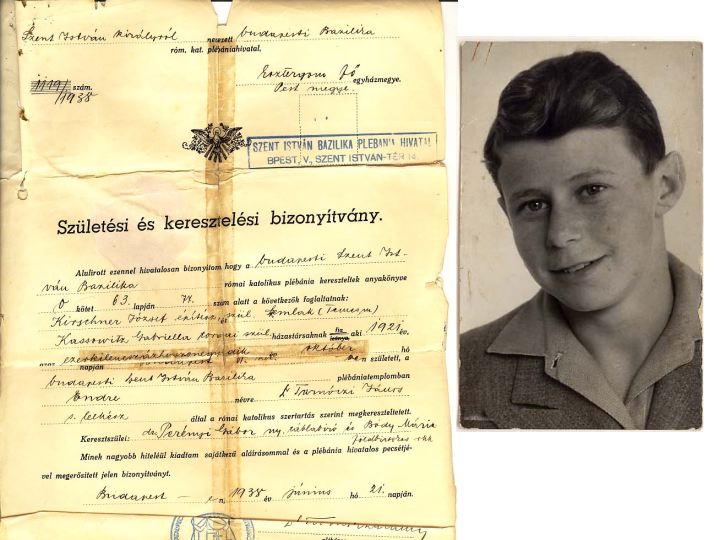 Szent István királyról nevezett budapesti Bazilika
róm. kat. plébániahivatal.
1119/1938 szám.
Esztergom Fő egyházmegye.
Pest megye.
SZENT ISTVÁN BAZILIKA PLEBÁNIA HIVATAL
BPEST, V., SZENT ISTVAN-TÉR 14.
Születési és keresztelési bizonyítvány.
Alulirott ezennel hivatalosan bizonyitom hogy a budapesti Szent Ist-
ván Bazilika római katolikus plébánia kereszteltek anyakönyve
O kötet 63. lapján 77. szám alatt a következők foglaltatnak:
Kirschner József épitész, szül.
Kassowitz Gabriella tornai szül. házastársaknak fia aki 1921 év
ezerkilencszázhuszonegyedik év október hó
azaz napján én született, a
budapesti Szent István Bazilika plébániatemplomban
Endre névre Dr Turnóczi János
s. lelkész által a római katolikus szertartás szerint megkereszteltetett.
Keresztszülei: dr. Perényi Gábor ny. táblabíró és Bódy Mária
földbirtokos
Minek nagyobb hiteléül kiadtam sajátkezű aláirásommal és a plébánia hivatalos pecsétjé-
vel megerősitett jelen bizonyitványt.
Budapest – en, 1938 év junius hó 21. napján.